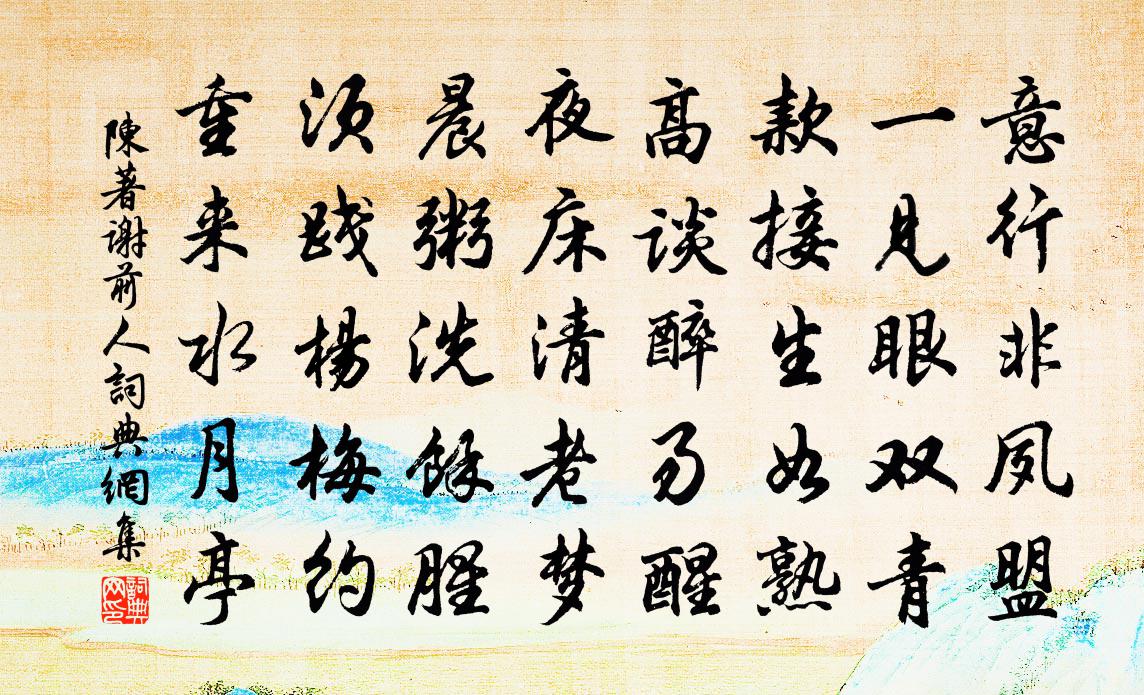 意行非夙盟
一见眼双青
款接生如熟
高谈醉乃醒
夜床清老梦
晨粥洗馀腥
须践杨梅约
重来水月亭
陳著谢前人詞典網集